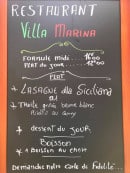 RESTAURANT
Villa Marina
Formule midi 15€00
PLAT du jour 12€00
PLAT
* LASAGNE alla Siciliana
ou
* Truite grillée beurre blanc
+ dessert du jour
Boisson
* Boisson au choix
Demandez notre carte de Fidélité